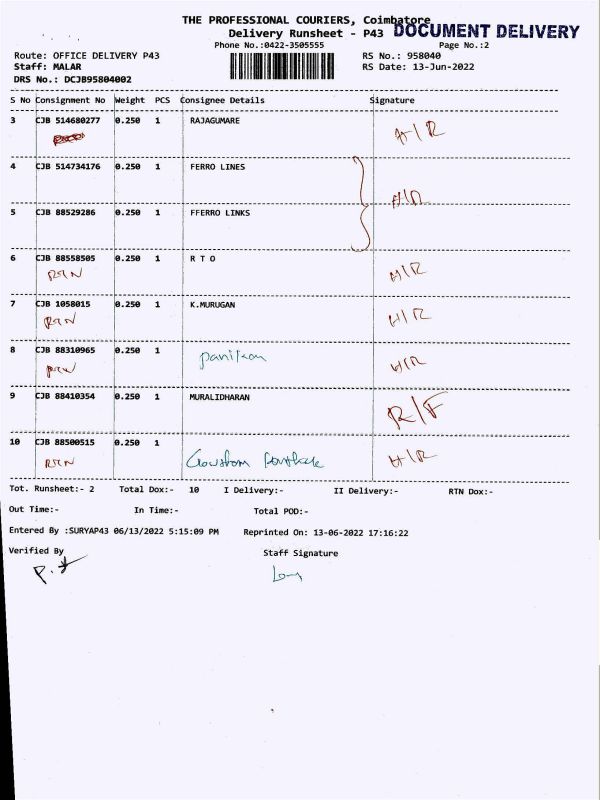 THE PROFESSIONAL COURIERS, Coimbatore
DOCUMENT DELIVERY
Delivery Runsheet - P43
Phone No.:0422-3505555 Page No.:2
Route: OFFICE DELIVERY P43 RS No.: 958040
Staff: MALAR RS Date: 13-Jun-2022
DRS No.: DCJB95804002
S No Consignment No Weight PCS Consignee Details Signature
3 CJB 514680277 0.250 1 RAJAGUMARE
H/R
4 CJB 514734176 0.250 1 FERRO LINES
H/R
5 CJB 88529286 0.250 1 FFERRO LINKS
6 CJB 88558505 0.250 1 R T O
RTN H/R
7 CJB 1058015 0.250 1 K.MURUGAN
RTN H/R
8 CJB 88310965 0.250 1
RTN H/R
9 CJB 88410354 0.250 1 MURALIDHARAN
R/F
10 CJB 88500515 0.250 1
RTN H/R
Tot. Runsheet:- 2 Total Dox:- 10 I Delivery:- II Delivery:- RTN Dox:-
Out Time:- In Time:- Total POD:-
Entered By :SURYAP43 06/13/2022 5:15:09 PM Reprinted On: 13-06-2022 17:16:22
Verified By Staff Signature